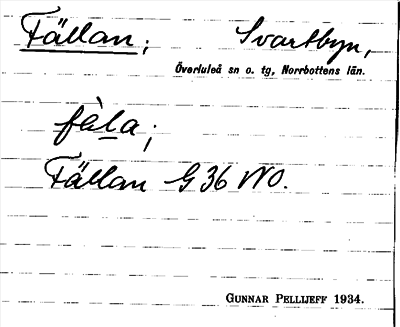 Fällan; Svartbyn,
Överluleå sn o. tg, Norrbottens län.
fàla;
Fällan G 36 NO.
GUNNAR PELLIJEFF 1934.